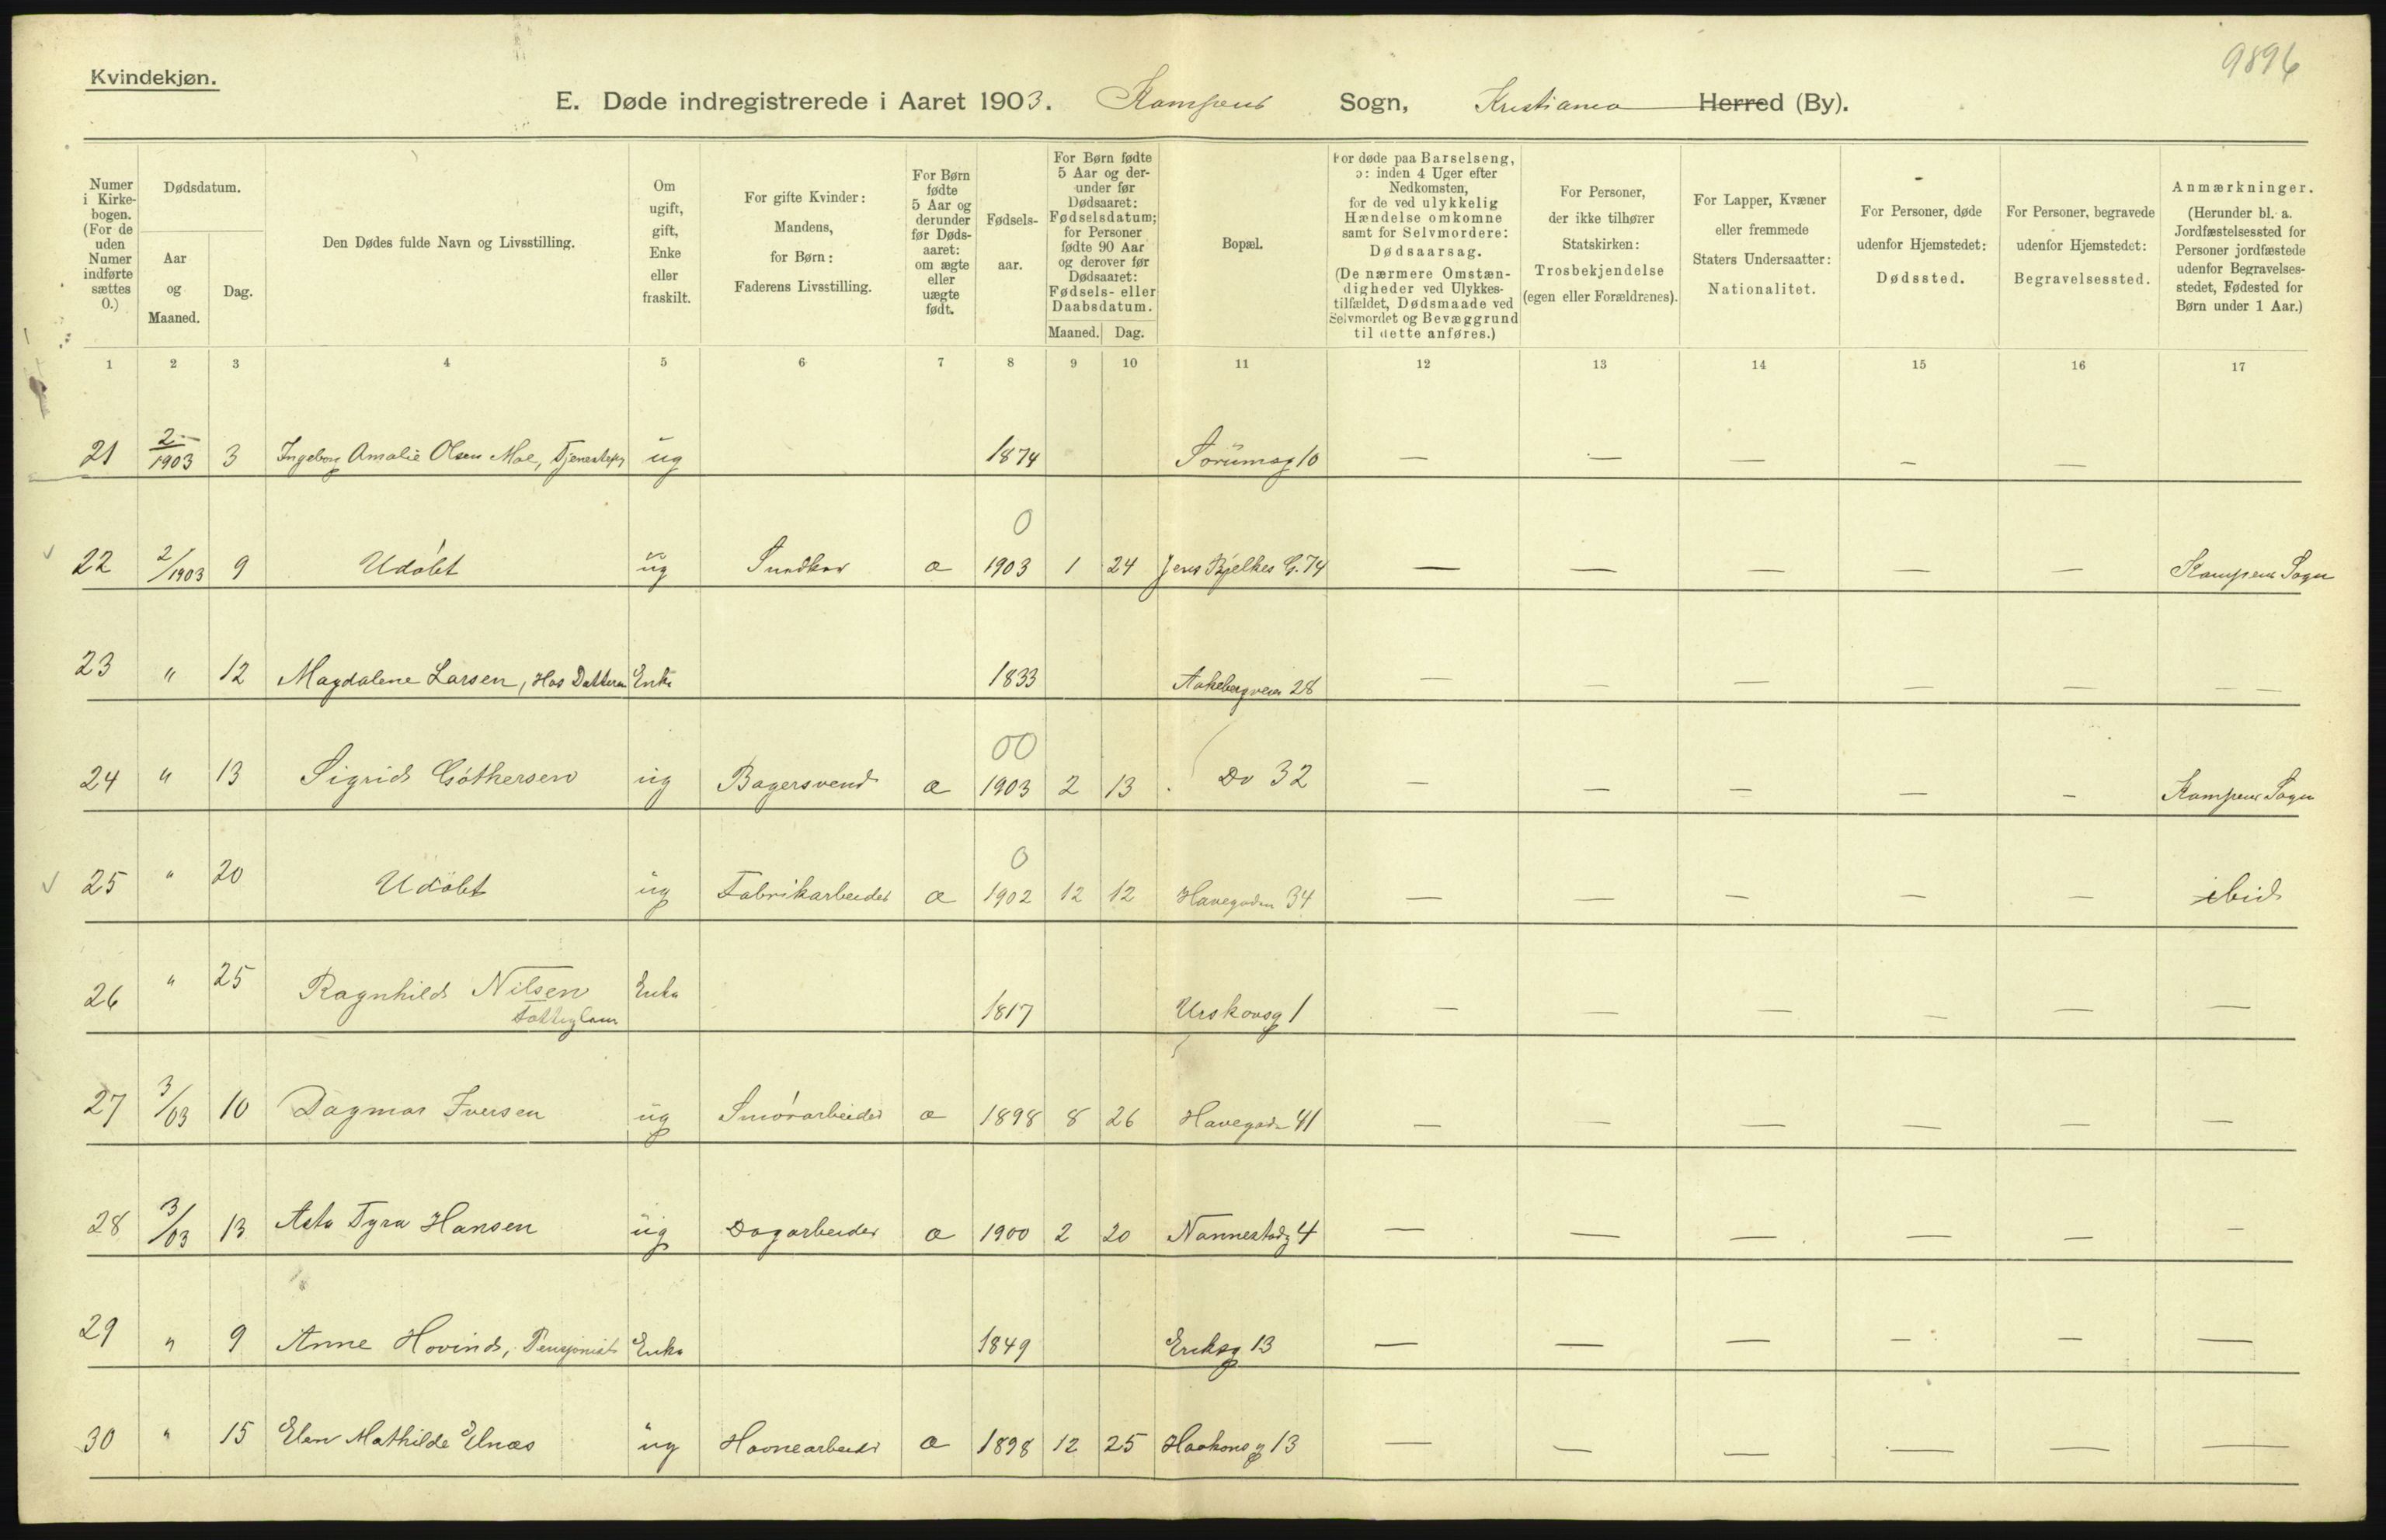 9896
Kvindekjøn.
E. Døde indregistrerede i Aaret 1903. Kampens Sogn, Kristiania Herred (By).
Numer i Kirkebogen. (For de uden Numer indførte sættes 0.)
Dødsdatum.
Aar og Maaned.
Dag.
Den Dødes fulde Navn og Livsstilling.
Om ugift, gift, Enke eller fraskilt.
For gifte Kvinder: Mandens, for Børn: Faderens Livsstilling.
For Børn fødte 5 Aar og derunder før Dødsaaret: om ægte eller uægte født.
Fødselsaar.
For Børn fødte 5 Aar og derunder før Dødsaaret: Fødselsdatum; for Personer fødte 90 Aar og derover før Dødsaaret: Fødsels- eller Daabsdatum.
Maaned. Dag.
Bopæl.
For døde paa Barselseng, ɔ: inden 4 Uger efter Nedkomsten, for de ved ulykkelig Hændelse omkomne samt for Selvmordere: Dødsaarsag. (De nærmere Omstændigheder ved Ulykkestilfældet, Dødsmaade ved Selvmordet og Bevæggrund til dette anføres.)
For Personer, der ikke tilhører Statskirken: Trosbekjendelse (egen eller Forældrenes).
For Lapper, Kvæner eller fremmede Staters Undersaatter: Nationalitet.
For Personer, døde udenfor Hjemstedet: Dødssted.
For Personer, begravede udenfor Hjemstedet: Begravelsessted.
Anmærkninger. (Herunder bl. a. Jordfæstelsessted for Personer jordfæstede udenfor Begravelsesstedet, Fødested for Børn under 1 Aar.)
1 2 3 4 5 6 7 8 9 10 11 12 13 14 15 16 17
21 2/1903 3 Ingeborg Amalie Olsen Moe, ug 1874 Sörumsg 10 — — — — —
0
22 2/1903 9 Udöbt ug æ 1903 1 24 Jens Bjelkes G. 74 — — — — — Kampens Sogn
23 " 12 Magdalene Larsen, Hos Datteren Enke 1833 Aakebergveien 28 — — — — — — —
00
24 " 13 Sigrid Göthersen ug Bagersvend æ 1903 2 13 Do 32 — — — — — Kampens Sogn
0
25 " 20 Udöbt ug Fabrikarbeider æ 1902 12 12 Havegaden 34 — — — — — ibid
26 " 25 Ragnhild Nilsen Enke 1817 Urskovsg 1 — — — — — —
Fattiglem
27 3/03 10 Dagmar Iversen ug æ 1898 8 26 Havegaden 41 — — — — — —
28 3/03 13 Asta Tyra Hansen ug Dagarbeider æ 1900 2 20 Nannestadg 4 — — — — — —
29 " 9 Anne Hovind, Pensjonist Enke 1849 Eriksg 13 — — — — — —
30 " 15 Elen Mathilde Elnæs ug Havnearbeider æ 1898 12 25 Haakonsg 13 — — — — — —